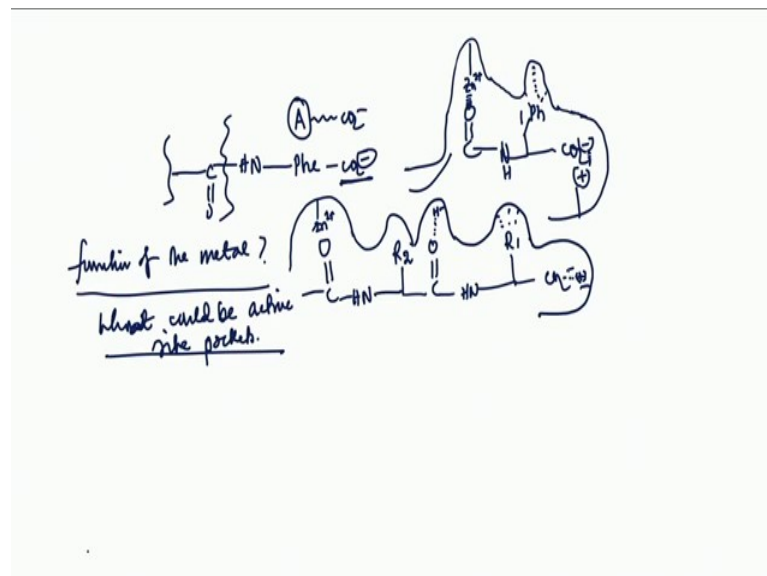 A CO2-
C HN Phe CO2-
O
Zn2+
O
C N H
Ph
CO2-
+
function of the metal?
What could be active
site pockets.
Zn2+
O
C HN
R2
H
O
C HN
R1